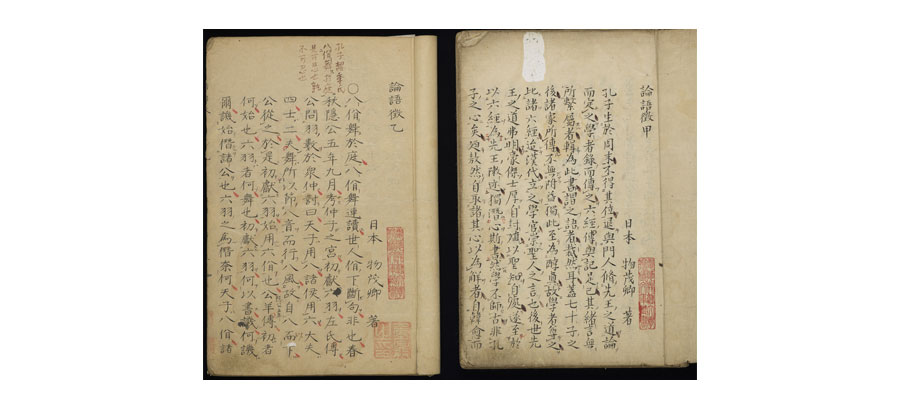 論語徵甲
日本 物茂卿 著
孔子生於周末不得其位退與門人脩先王之道論
而定之學者錄而傳之六經傳與記是已其緒言無
所繫屬者輯為此書謂之語者哉然耳蓋七十子之
後諸家所傳不無附益獨此至為醇真故學者尊之
比諸六經迨漢代立之學官崇聖人之言也後世先
王之道弗明豪傑士厚自封殖以聖知自處遂至於
以六經為先王陳迹獨潛心斯書學不師古非孔
子之心矣然自取諸其心以為解者自韓愈而
論語徵乙
日本 物茂卿 著
孔子謂季氏
八佾舞於庭
是可忍也孰
不可忍也
○八佾舞於庭八佾舞連讀世人佾下斷句非也春
秋隱公五年九月考仲子之宮初獻六羽左氏傳
公問羽數於衆仲對曰天子用八諸侯用六大夫
四士二夫舞所以節八音而行八風故自八而下
公從之於是初獻六羽始用六佾也公羊傳初者
何始也六羽者何舞也初獻六羽何以書譏何譏
爾譏始僭諸公也六羽之為僭奈何天子八佾諸